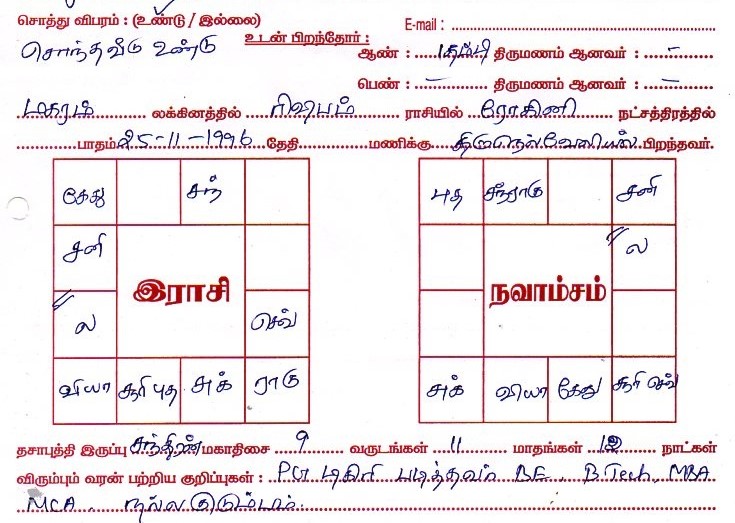 சொத்து விபரம் : (உண்டு / இல்லை) E-mail :
சொந்தவீடு உண்டு உடன் பிறந்தோர் : ஆண் : 1தம்பி திருமணம் ஆனவர் : -
பெண் : - திருமணம் ஆனவர் : -
மகரம் லக்கினத்தில் ரிஷபம் ராசியில் ரோகினி நட்சத்திரத்தில்
பாதம் 25-11-1996 தேதி மணிக்கு திருநெல்வேலியில் பிறந்தவர்.
கேது சந் புத சந்ராகு சனி
சனி ல
இராசி நவாம்சம்
ல செவ்
வியா சூரிபுத சுக் ராகு சுக் வியா கேது சூரி செவ்
தசாபுத்தி இருப்பு சந்திரன் மகாதிசை 9 வருடங்கள் 11 மாதங்கள் நாட்கள்
விரும்பும் வரன் பற்றிய குறிப்புகள் : PG டிகிரி படித்தவர் BE, B.Tech, MBA
MCA. நல்ல குடும்பம்.